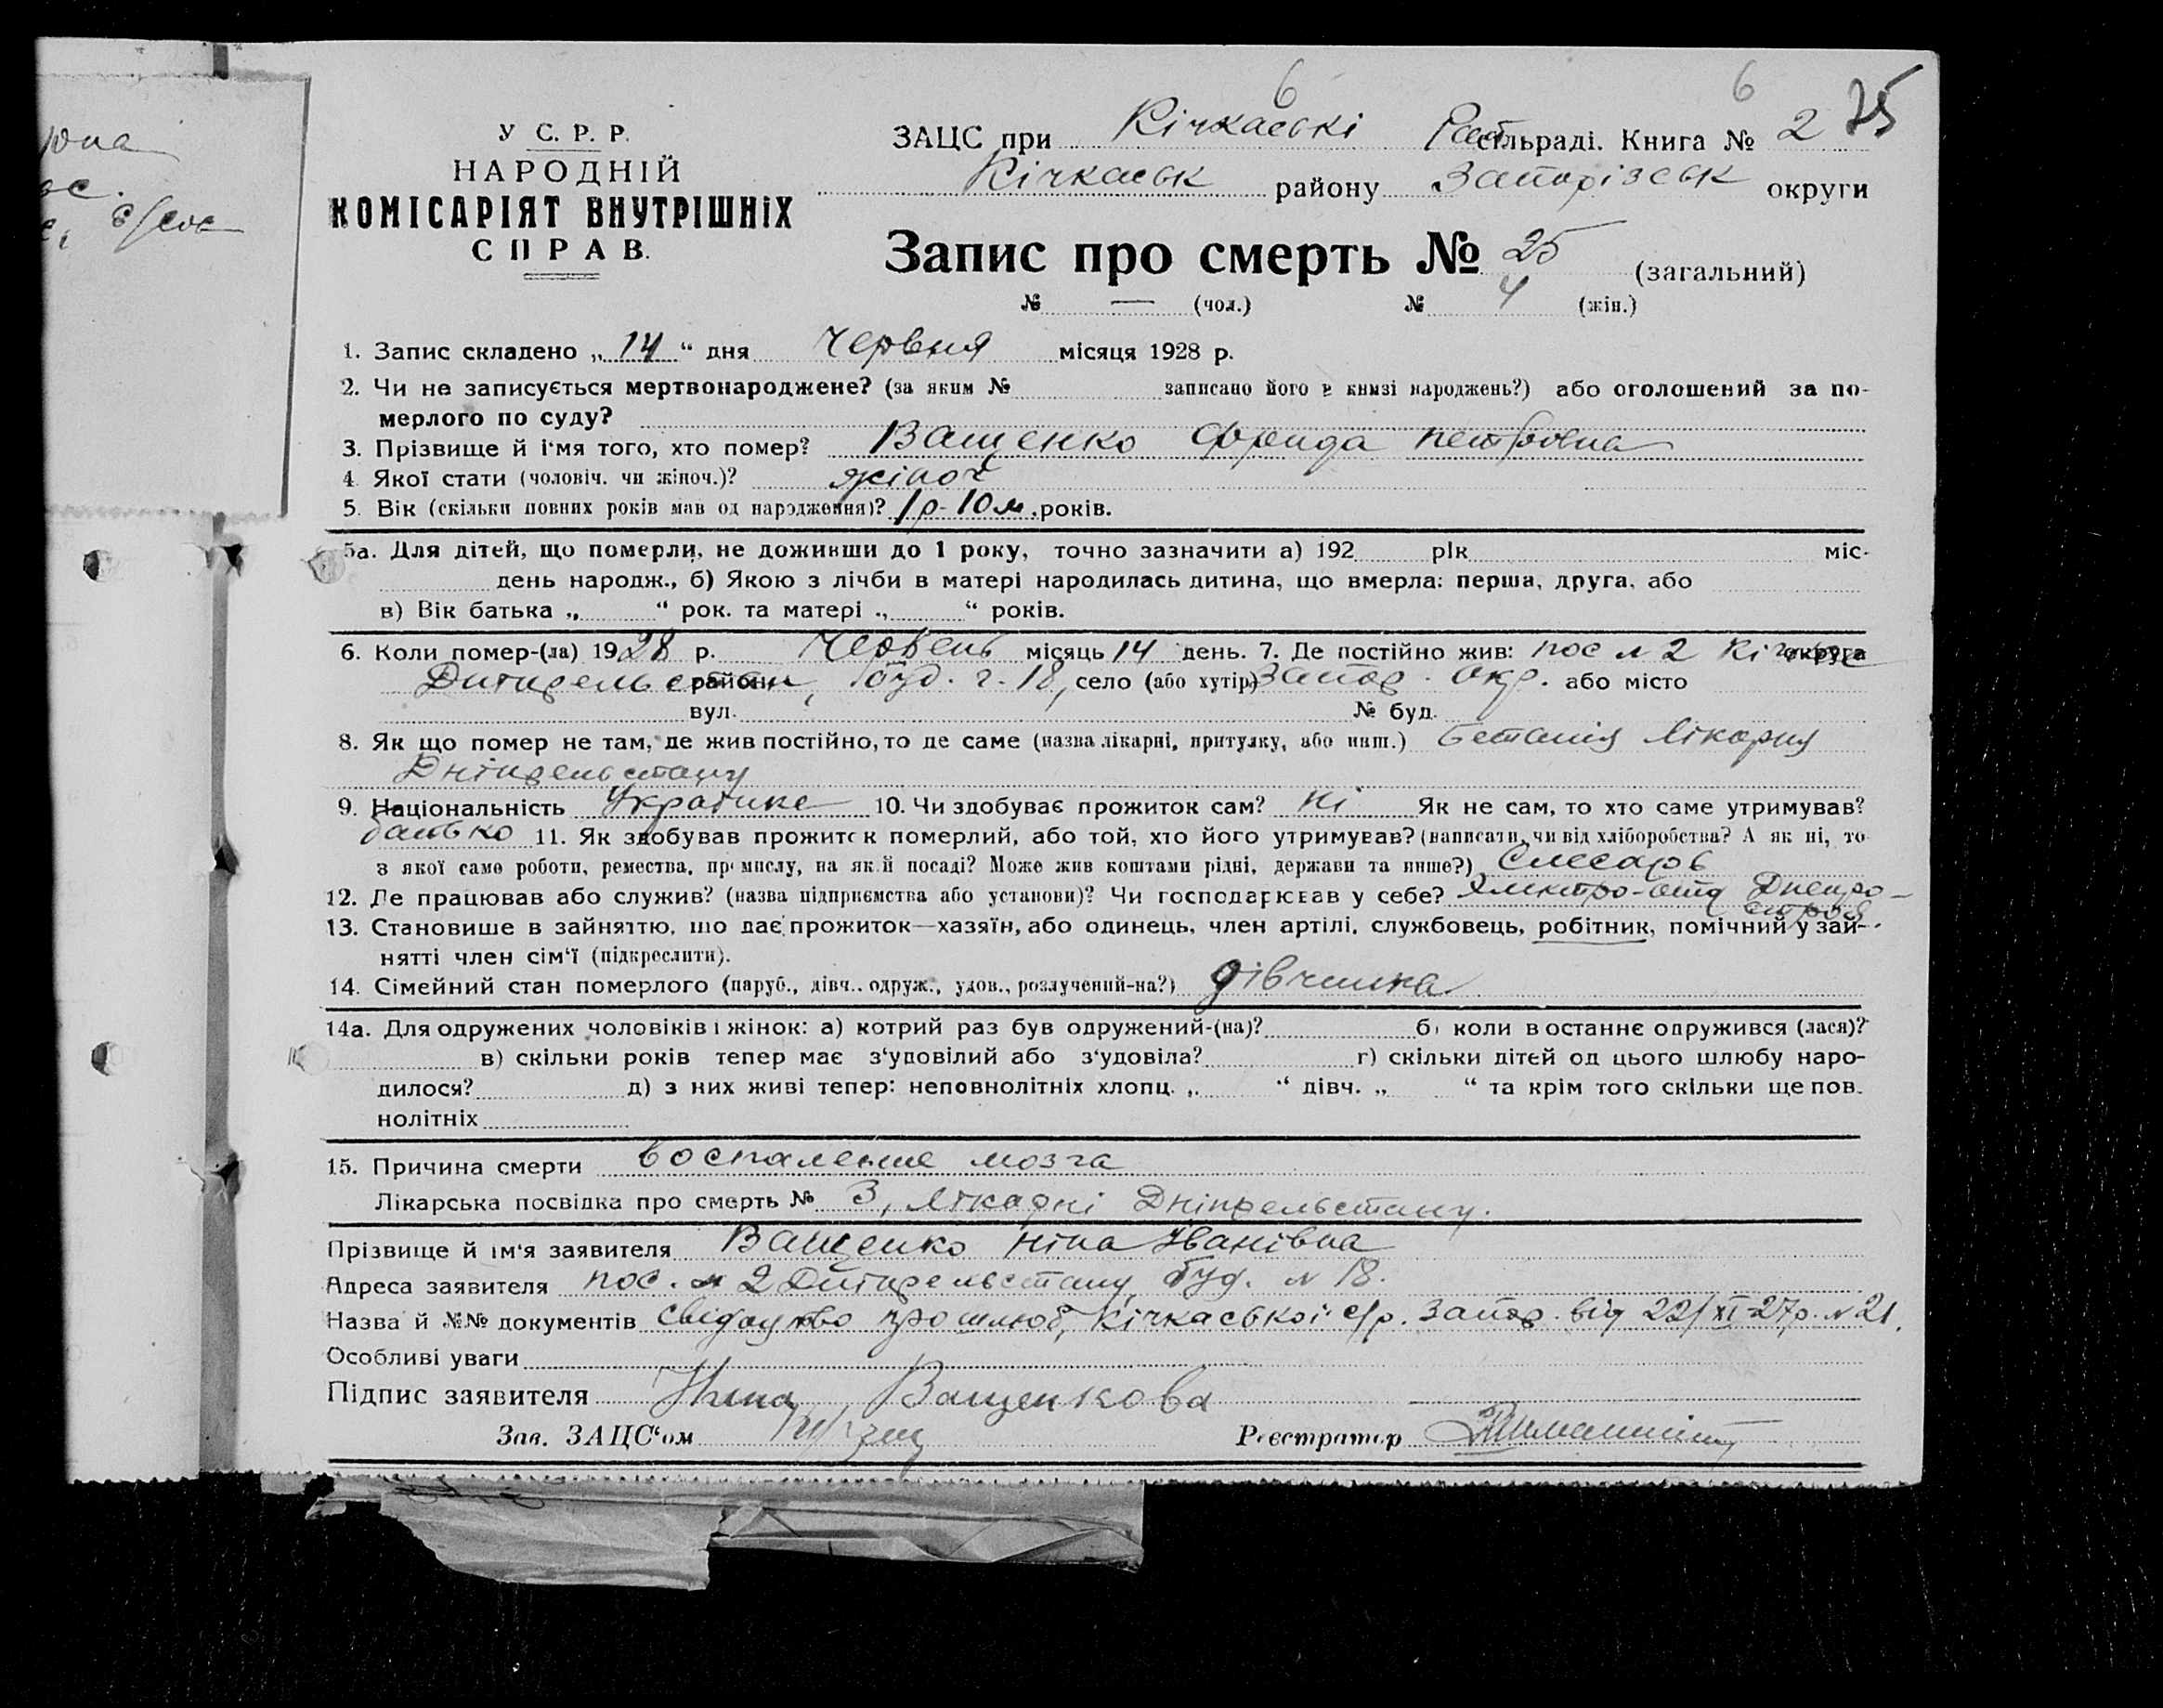 6 6
У С. Р. Р.
НАРОДНІЙ
КОМІСАРІЯТ ВНУТРІШНІХ
СПРАВ.
ЗАЦС при Кічкаські сільраді. Книга № 2 75
Кічкаськ району Запорізськ округи
Запис про смерть № 25 (загальний)
№ — (чол.) № 4 (жін.)
1. Запис складено „ 14 “ дня червня місяця 1928 р.
2. Чи не записується мертвонароджене? (за яким № записано його в книзі народжень?) або оголошений за по-
мерлого по суду?
3. Прізвище й і'мя того, хто помер? Ващенко Фрида петровна
4. Якої стати (чоловіч. чи жіноч.)? жіноч
5. Вік (скільки повних років мав од народження)? 1 р- 10 м. років.
5а. Для дітей, що померли, не доживши до 1 року, точно зазначити а) 192 рік міс-
день народж., б) Якою з лічби в матері народилась дитина, що вмерла: перша, друга, або
в) Вік батька „ “ рок. та матері „ “ років.
6. Коли помер-(ла) 1928 р. Червень місяць 14 день. 7. Де постійно жив: пос № 2 округа
району, буд. ч. 18, село (або хутір) Запор. Окр. або місто
вул. № буд.
8. Як що помер не там, де жив постійно, то де саме (назва лікарні, притулку, або инш.) Бетанія лікарня
Дніпрельстану
9. Національність Українка 10. Чи здобуває прожиток сам? ні Як не сам, то хто саме утримував?
батько 11. Як здобував прожиток померлий, або той, хто його утримував? (написати, чи від хліборобства? А як ні, то
з якої саме роботи, ремества, промислу, на якій посаді? Може жив коштами рідні, держави та инше?) Слесарь
12. Де працював або служив? (назва підприємства або установи)? Чи господарював у себе? Электро-отд Днепро-
строя
13. Становише в зайняттю, що дає прожиток—хазяїн, або одинець, член артілі, службовець, робітник, помічний у зай-
нятті член сім'ї (підкреслити).
14. Сімейний стан померлого (паруб., дівч.. одруж., удов., розлучений-на?) дівчинка
14а. Для одружених чоловіків і жінок: а) котрий раз був одружений-(на)? б) коли в останнє одружився (лася)?
в) скільки років тепер має з'удовілий або з'удовіла? г) скільки дітей од цього шлюбу наро-
дилося? д) з них живі тепер: неповнолітніх хлопц. „ “ дівч. „ “ та крім того скільки ще пов.
нолітніх
15. Причина смерти воспаление мозга
Лікарська посвідка про смерть № 3, лікарні Дніпрельстану.
Прізвище й ім'я заявителя Ващенко Ніна Іванівна
Адреса заявителя пос. № 2 Дніпрельстану, буд. № 18.
Назва й №№ документів свідоцтво про шлюб, Кічкаської с/р. Запор. від 22/XI-27р. № 21.
Особливі уваги
Підпис заявителя Нина Ващенкова
Зав. ЗАЦС'ом
Реєстратор